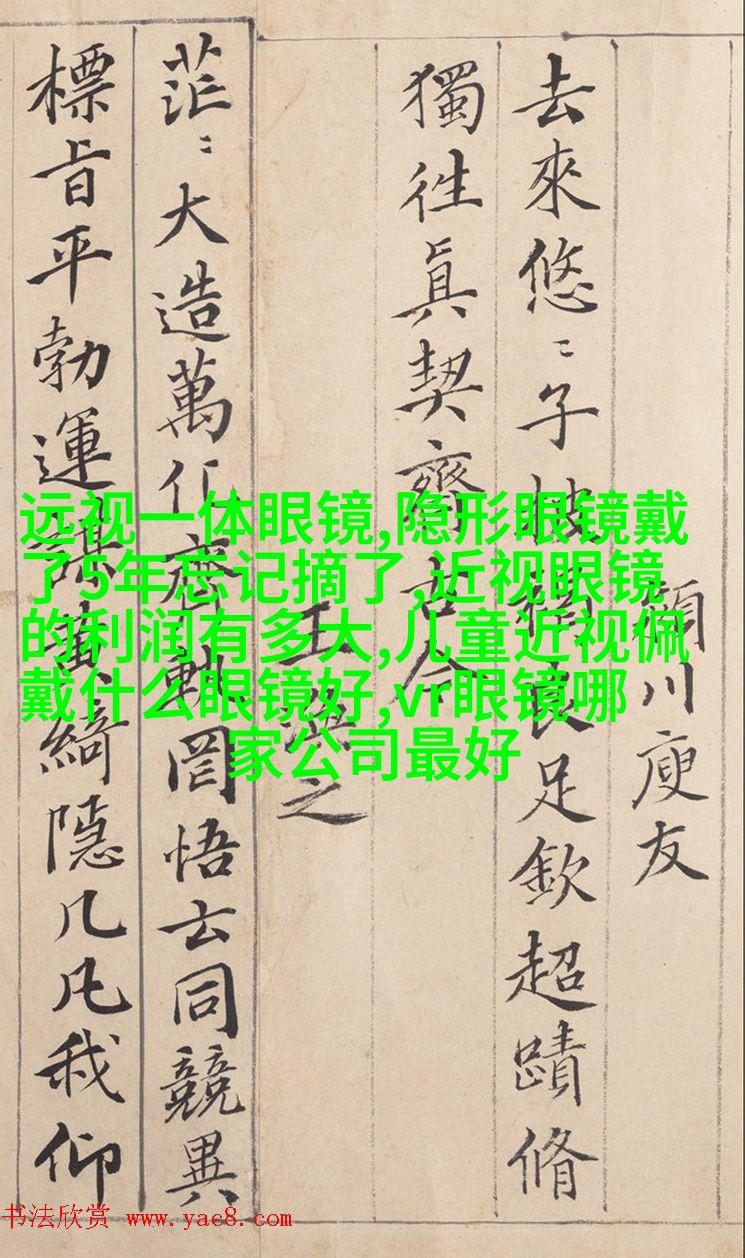 潁川庾友
去來悠〻子披褐良足欽超蹟脩
獨往真契齊古今
王渙之
茫〻大造萬化齊軌罔悟玄同競異
標旨平勃運謀黃綺隱几凡我仰
远视一体眼镜,隐形眼镜戴
了5年忘记摘了,近视眼镜
的利润有多大,儿童近视佩
戴什么眼镜好,vr眼镜哪
家公司最好
书法欣赏 www.yac8.com